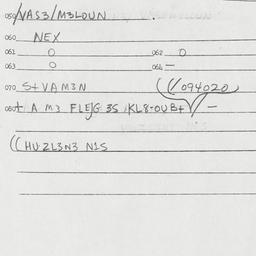 050 VAS3/M3LOUN
060 NEX
061 O 062 O
063 O 064 —
070 S+VAM3N ((/094020
080 + A M3 FLEJG 3S KL8-OUB+ / —
((HU2L3N3 N1S